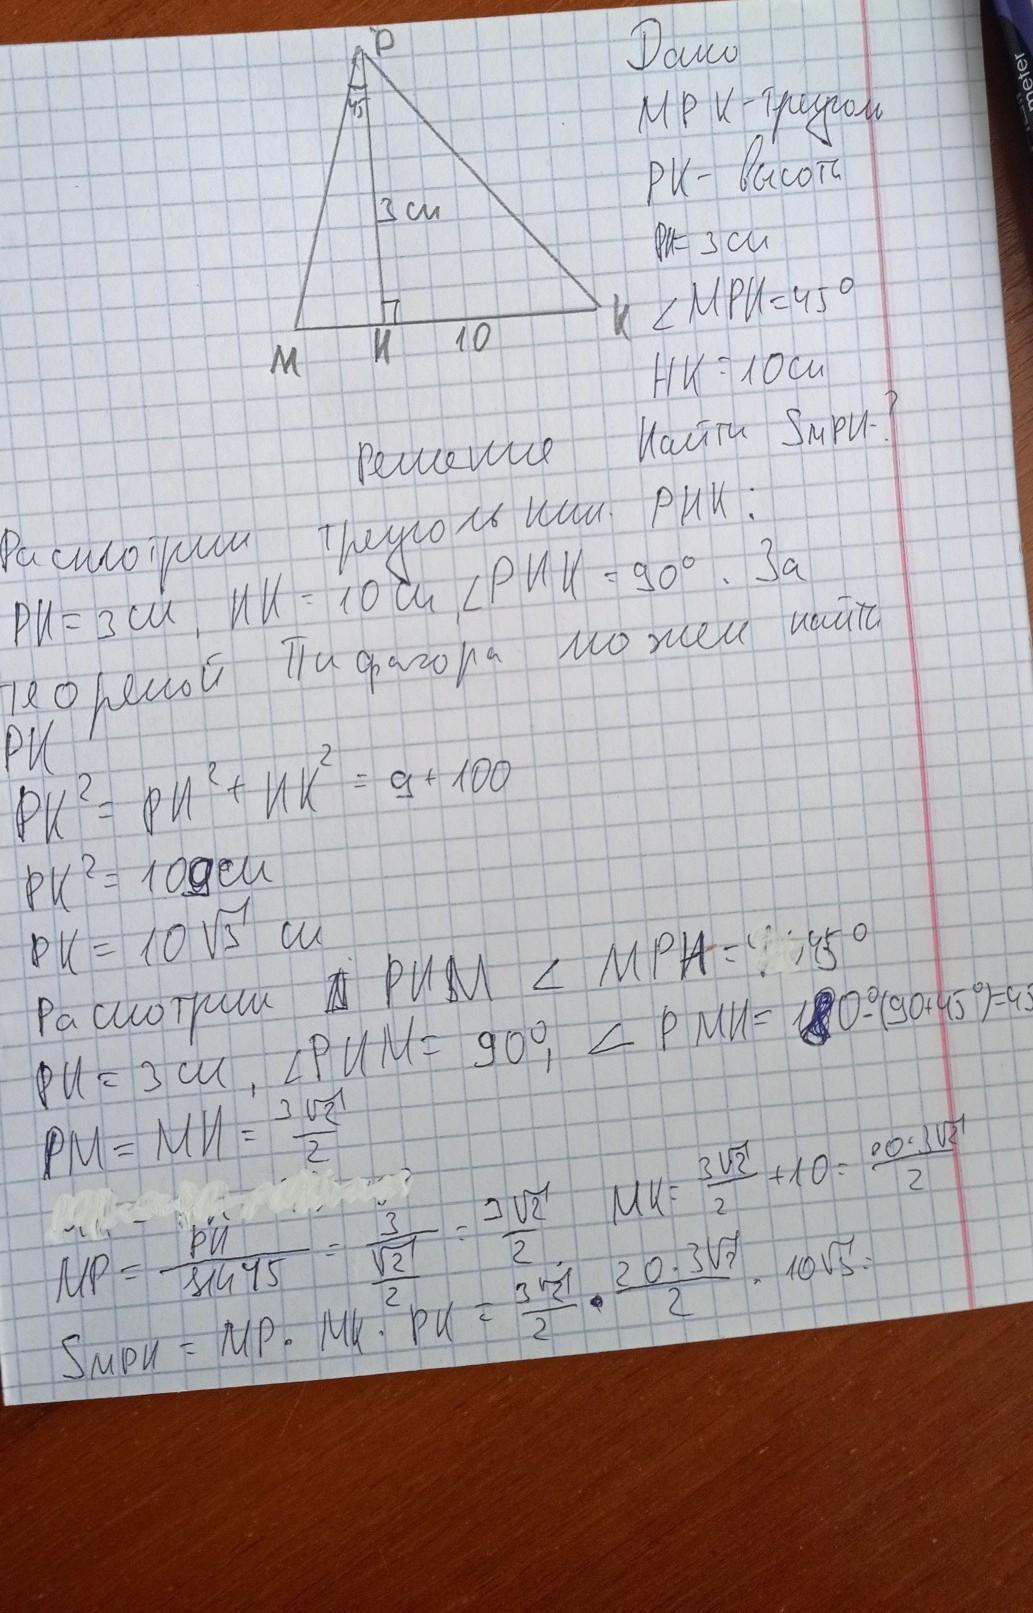 P
45
3 см
M
H
10
K
Дано
MPK-треугол
PH- высота
PH=3см
∠MPH=45°
HK=10см
Найти SMPK-?
Решение
Расмотрим треугольник. PHK:
PH=3см, HK=10см, ∠PHK=90°. За
теоремой Пифагора можем найти
PK
PK²= PH²+HK²=9+100
PK²=109см
PK=10√3 см
Расмотрим Δ PHM ∠ MPH=45°
PH=3см, ∠PHM=90°, ∠ PMH=180°-(90+45°)=45
PM=MH=3√2/2
MP=PH/sin45=3/(√2/2)=3√2/2 MK=3√2/2+10=20·3√2/2
SMPK=MP·MK·PK=3√2/2·20·3√2/2·10√3=